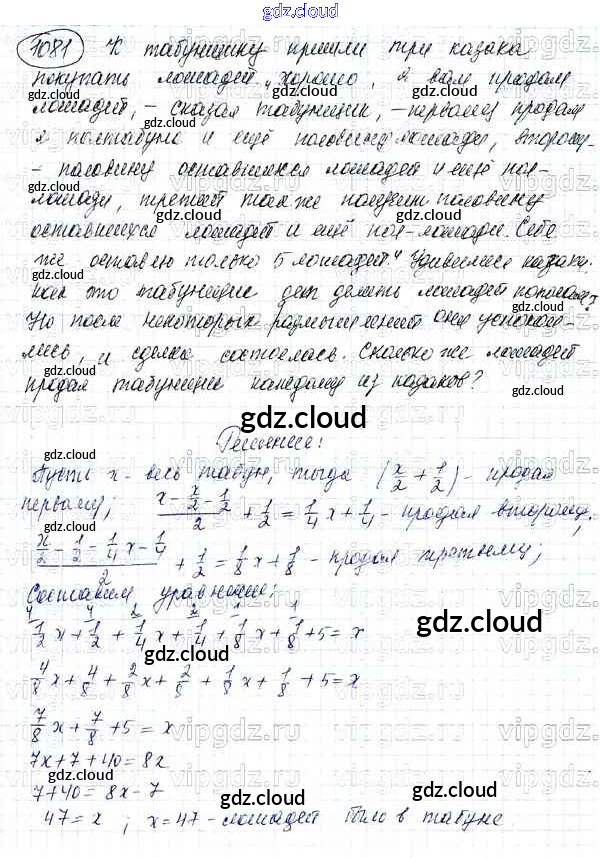 gdz.cloud
1081 К табунщику пришли три казака
покупать лошадей. „Хорошо, я вам продам
лошадей, – сказал табунщик, – первому продам
я полтабуна и ещё половину лошади, второму-
- половину оставшихся лошадей и ещё пол-
лошади, третий также получит половину
оставшихся лошадей и ещё пол-лошади. Себе
же оставлю только 5 лошадей." Удивились казаки,
как это табунщик
делить лошадей
Но после некоторых размышлений они успокои-
лись, и сделка состоялась. Сколько же лошадей
продал табунщик каждому из казаков?
gdz.cloud
Решение:
Пусть x - весь табун, тогда (x/2 + 1/2) - продал
первому; (x - x/2 - 1/2)/2 + 1/2 = 1/4 x + 1/4 - продал второму;
(x/2 - 1/2 - 1/4 x - 1/4)/2 + 1/2 = 1/8 x + 1/8 - продал третьему;
Составим уравнение:
1/2 x + 1/2 + 1/4 x + 1/4 + 1/8 x + 1/8 + 5 = x
4/8 x + 4/8 + 2/8 x + 2/8 + 1/8 x + 1/8 + 5 = x
7/8 x + 7/8 + 5 = x
7x + 7 + 40 = 8x
7 + 40 = 8x - 7
47 = x ; x = 47 - лошадей было в табуне